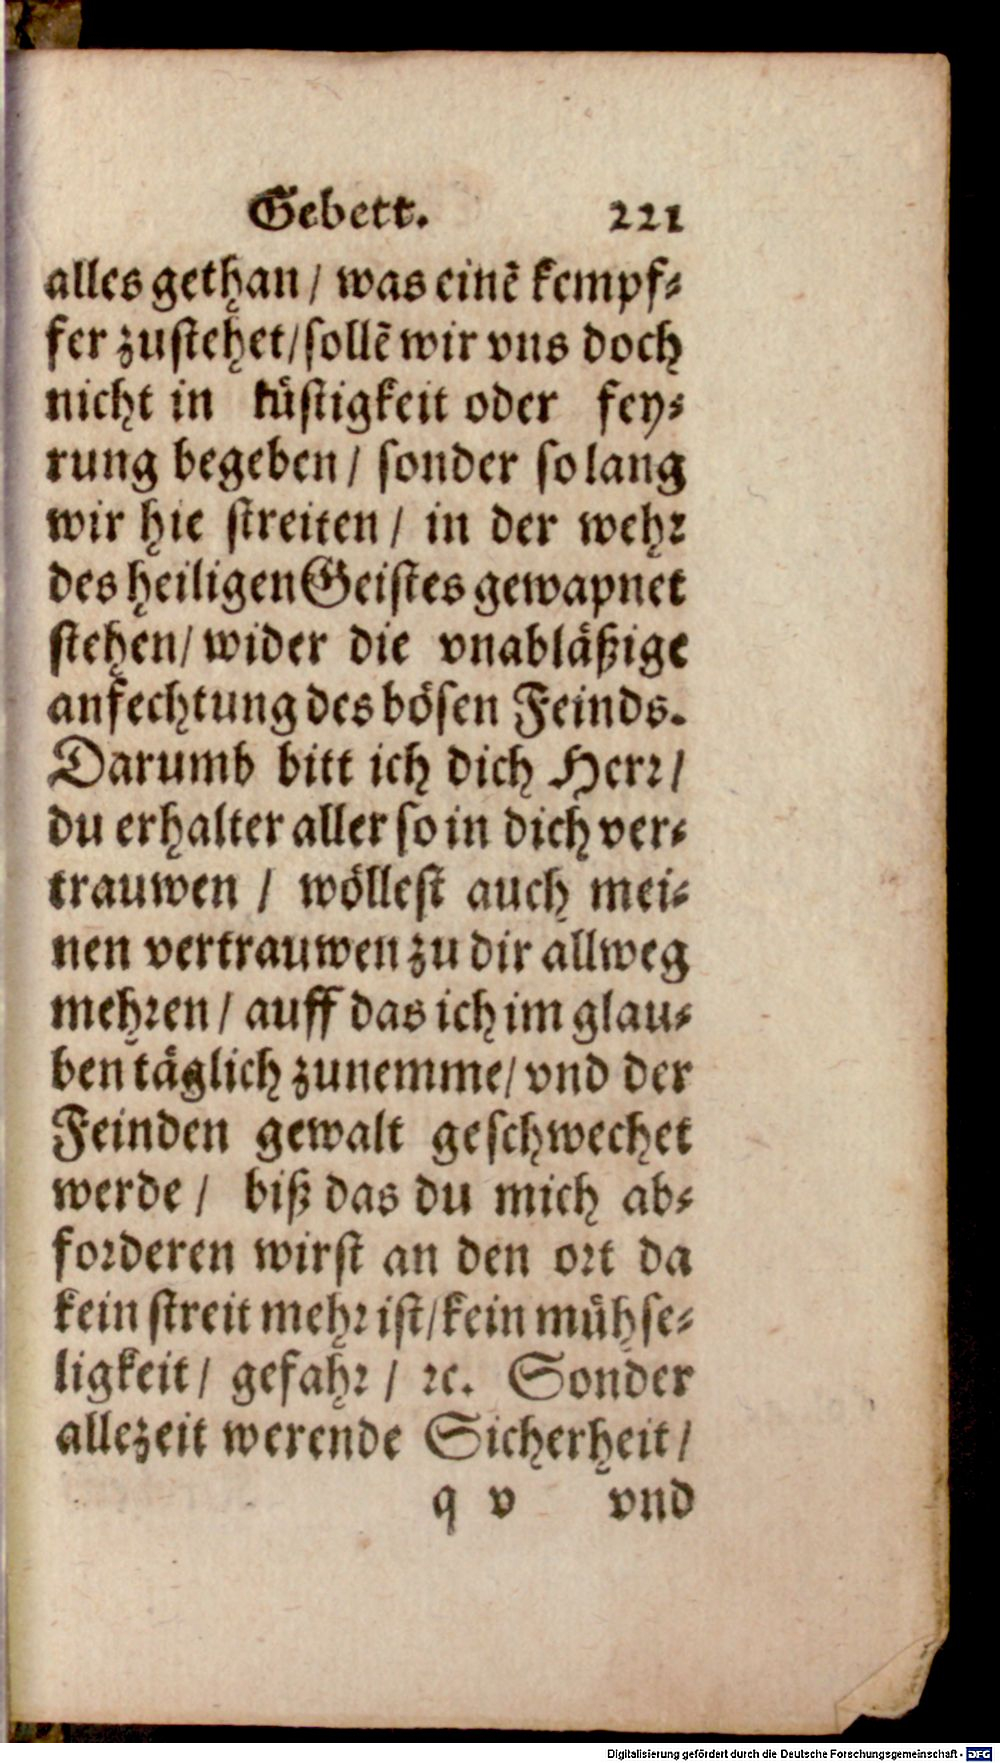 Gebett. 221
alles gethan / was einē kempf⸗
fer zustehet/sollē wir vns doch
nicht in lüstigkeit oder fey⸗
rung begeben / sonder so lang
wir hie streiten / in der wehr
des heiligen Geistes gewapnet
stehen/ wider die vnabläßige
anfechtung des bösen Feinds.
Darumb bitt ich dich Herr /
du erhalter aller so in dich ver⸗
trauwen / wöllest auch mei⸗
nen vertrauwen zu dir allweg
mehren / auff das ich im glau⸗
ben täglich zunemme/ vnd der
Feinden gewalt geschwechet
werde / biß das du mich ab⸗
forderen wirst an den ort da
kein streit mehr ist/kein mühse⸗
ligkeit / gefahr / ꝛc. Sonder
allezeit werende Sicherheit /
q v vnd
Digitalisierung gefördert durch die Deutsche Forschungsgemeinschaft - DFG